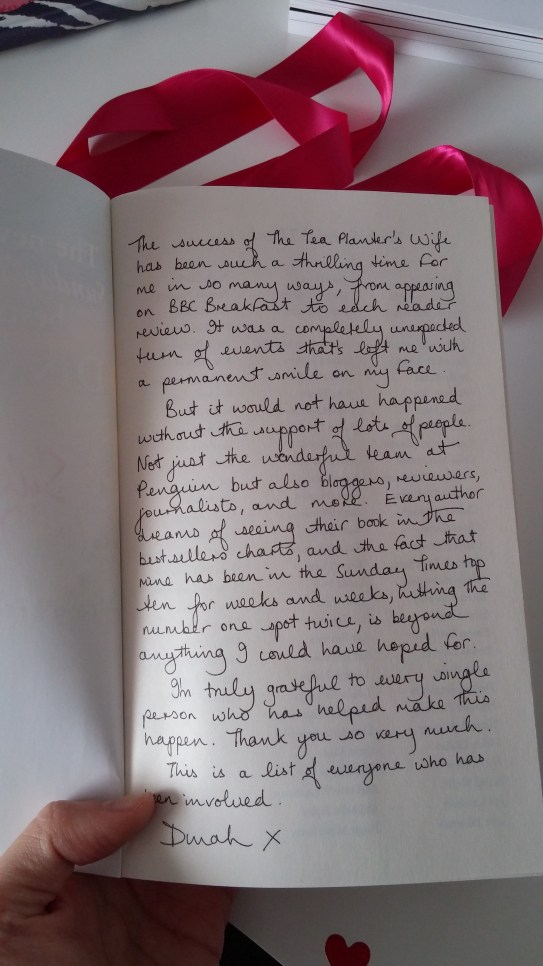 The success of The Tea Planter's Wife
has been such a thrilling time for
me in so many ways, from appearing
on BBC Breakfast to each reader
review. It was a completely unexpected
turn of events that's left me with
a permanent smile on my face.
But it would not have happened
without the support of lots of people.
Not just the wonderful team at
Penguin but also bloggers, reviewers,
journalists, and more. Every author
dreams of seeing their book in the
bestsellers charts, and the fact that
mine has been in the Sunday Times top
ten for weeks and weeks, hitting the
number one spot twice, is beyond
anything I could have hoped for.
I'm truly grateful to every single
person who has helped make this
happen. Thank you so very much.
This is a list of everyone who has
been involved.
Dinah X